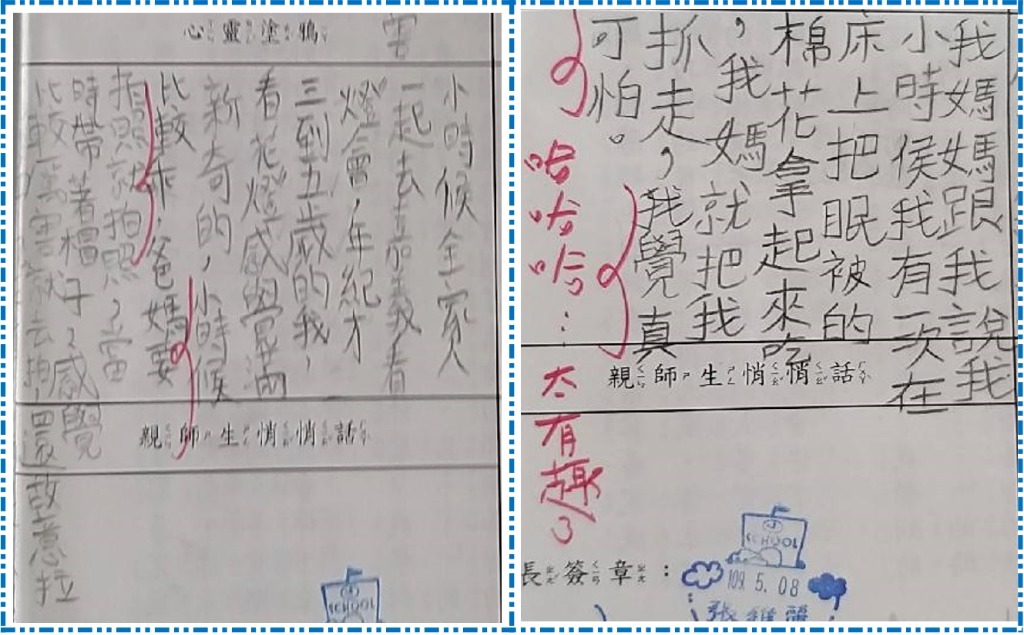 心靈塗鴉
小時候全家人
一起去嘉義看
燈會,年紀才
三到五歲的我,
看花燈感覺滿
新奇的,小時候
比較乖,爸媽要
拍照就拍照,當
時帶著帽子,感覺
比較厲害就去拍,還故意拉
親師生悄悄話
SCHOOL
我媽媽跟我說我
小時侯我有一次在
床上把眠被的
棉花拿起來吃
,我媽就把我
抓走,我覺真
可怕。
哈哈哈…
太有趣了
親師生悄悄話
長簽章:
SCHOOL
109. 5. 08